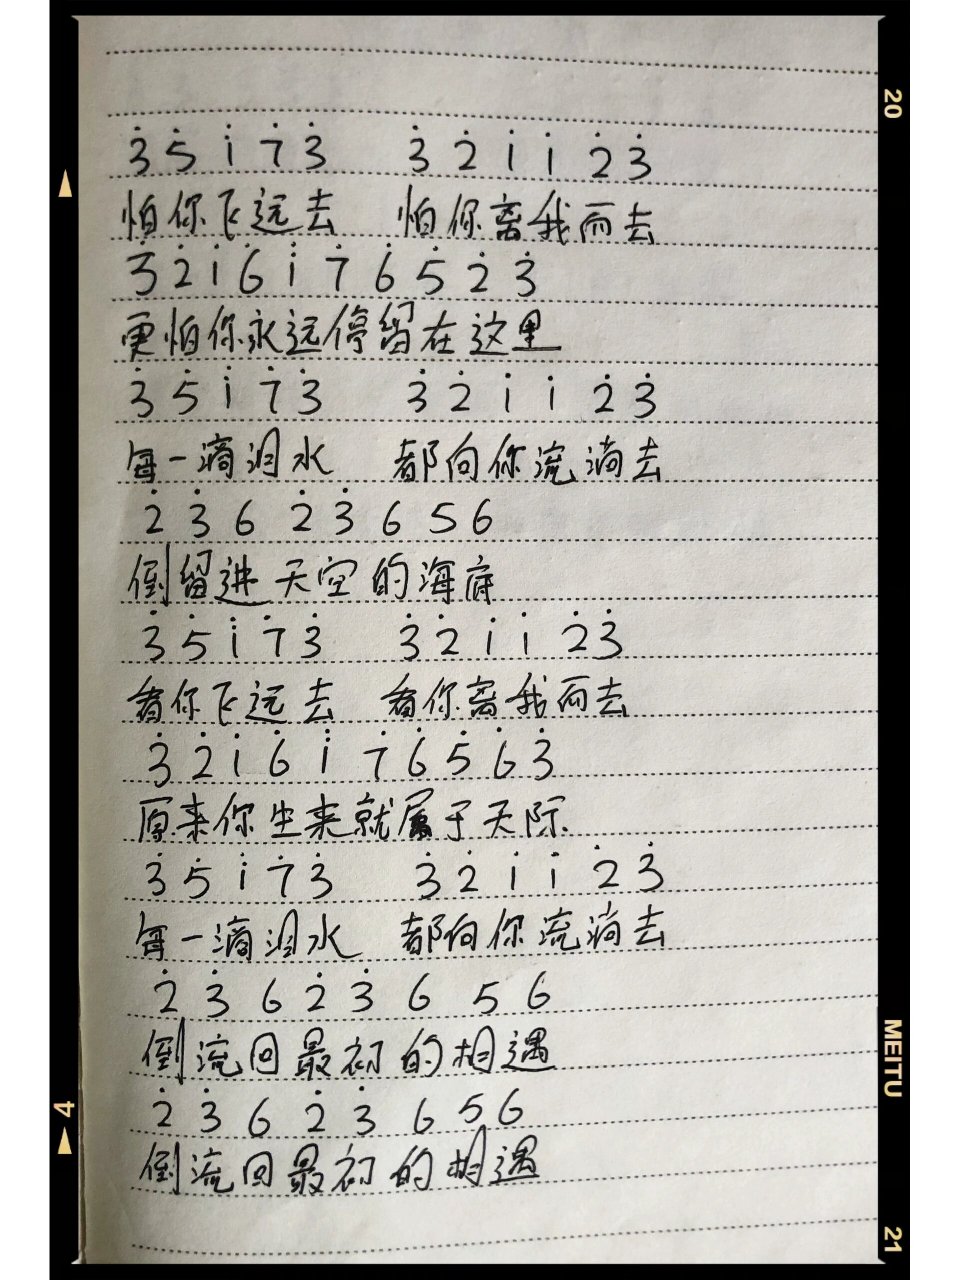 3̇ 5̇ 1̇ 7̇ 3̇ 3̇ 2̇ 1̇ 1̇ 2̇ 3̇
怕你飞远去 怕你离我而去
3̇ 2̇ 1̇ 6̇ 1̇ 7̇ 6̇ 5̇ 2̇ 3̇
更怕你永远停留在这里
3̇ 5̇ 1̇ 7̇ 3̇ 3̇ 2̇ 1̇ 1̇ 2̇ 3̇
每一滴泪水 都向你流淌去
2̇ 3̇ 6 2̇ 3̇ 6 5 6
倒留进天空的海底
3̇ 5̇ 1̇ 7̇ 3̇ 3̇ 2̇ 1̇ 1̇ 2̇ 3̇
看你飞远去 看你离我而去
3̇ 2̇ 1̇ 6̇ 1̇ 7̇ 6̇ 5̇ 6̇ 3̇
原来你生来就属于天际
3̇ 5̇ 1̇ 7̇ 3̇ 3̇ 2̇ 1̇ 1̇ 2̇ 3̇
每一滴泪水 都向你流淌去
2̇ 3̇ 6 2̇ 3̇ 6 5 6
倒流回最初的相遇
2̇ 3̇ 6 2̇ 3̇ 6 5 6
倒流回最初的相遇
20
MEITU
21
4